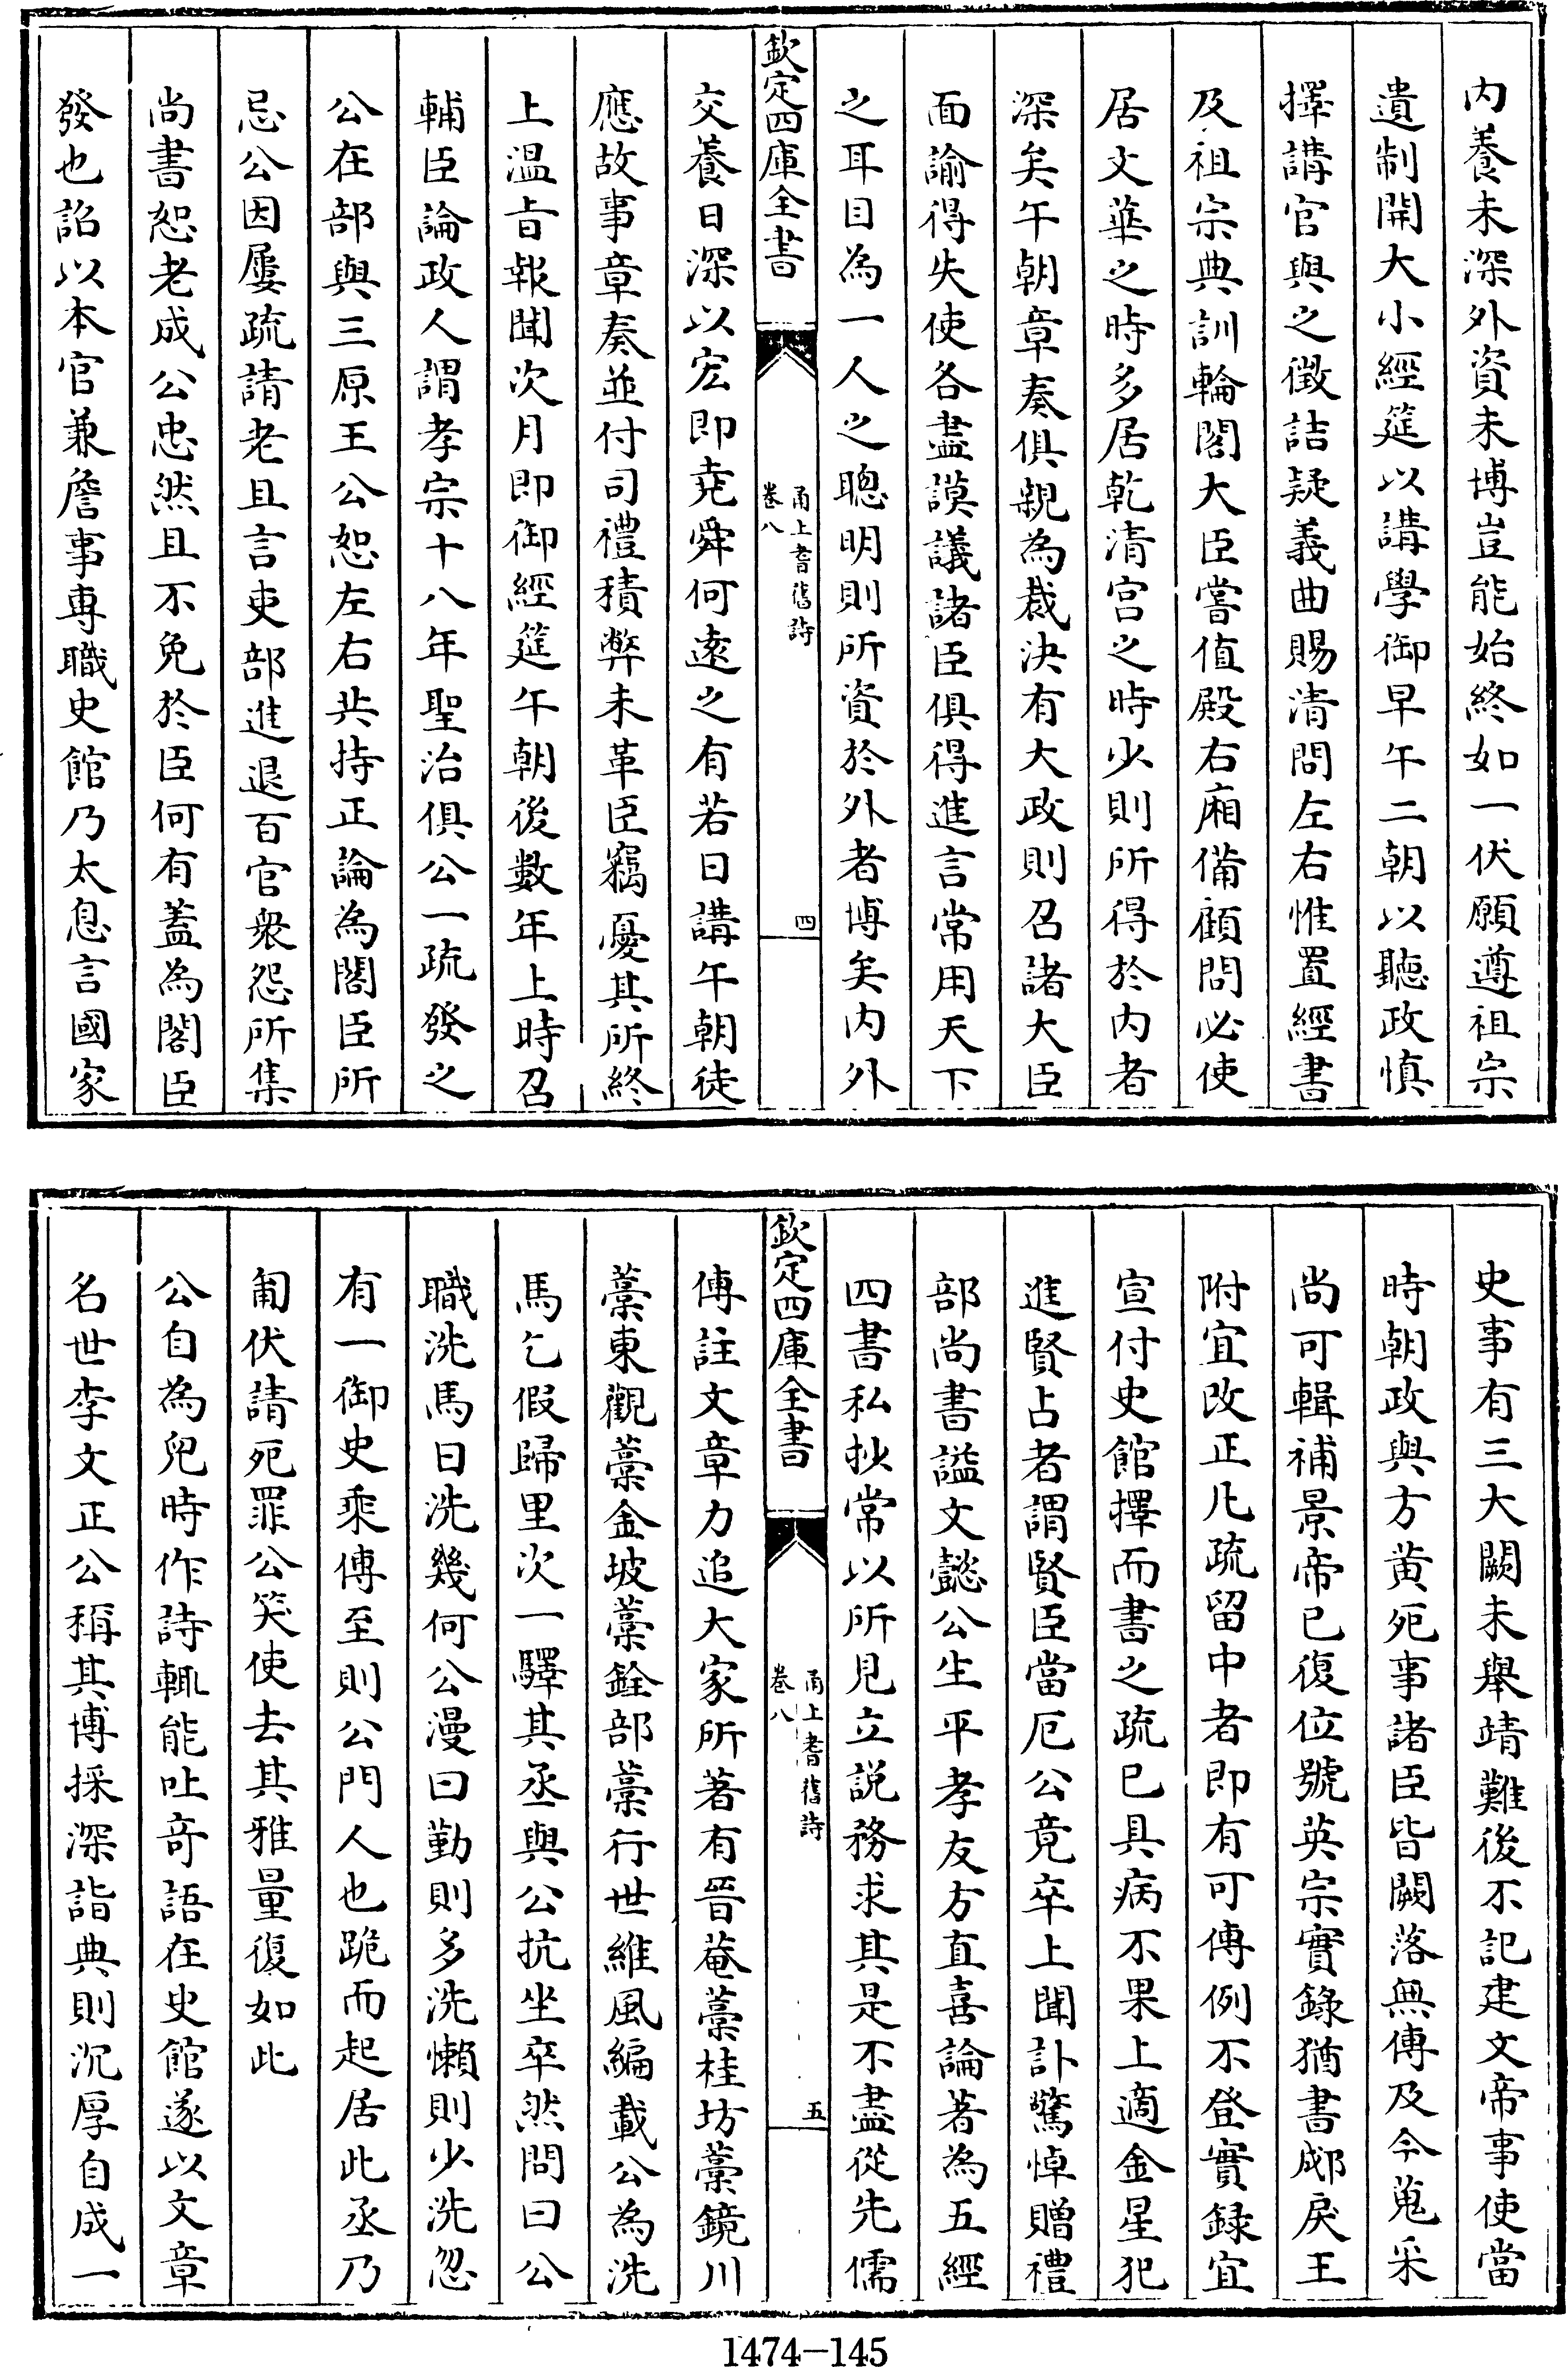 内養未深外資未博豈能始終如一伏願遵祖宗
遺制開大小經筵以講學御早午二朝以聽政慎
擇講官與之徵詰疑義曲賜清問左右惟置經書
及祖宗典訓輪閣大臣嘗值殿右廂備顧問必使
居文華之時多居乾清宮之時少則所得於内者
深矣午朝章奏俱親為裁決有大政則召諸大臣
面諭得失使各盡謨議諸臣俱得進言常用天下
之耳目為一人之聰明則所資於外者博矣内外
欽定四庫全書
甬上耆舊詩
卷八
四
交養日深以宏即堯舜何遠之有若日講午朝徒
應故事章奏並付司禮積弊未革臣竊憂其所終
上温旨報聞次月即御經筵午朝後數年上時召
輔臣論政人謂孝宗十八年聖治俱公一疏發之
公在部與三原王公恕左右共持正論為閣臣所
忌公因屢疏請老且言吏部進退百官衆怨所集
尚書恕老成公忠然且不免於臣何有蓋為閣臣
發也詔以本官兼詹事專職史館乃太息言國家
史事有三大闕未舉靖難後不記建文帝事使當
時朝政與方黄死事諸臣皆闕落無傳及今蒐采
尚可輯補景帝已復位號英宗實錄猶書郕戾王
附宜改正凡疏留中者即有可傳例不登實録宜
宣付史館擇而書之疏已具病不果上適金星犯
進賢占者謂賢臣當厄公竟卒上聞訃驚悼贈禮
部尚書謚文懿公生平孝友方直喜論著為五經
四書私抄常以所見立説務求其是不盡從先儒
欽定四庫全書
甬上耆舊詩
卷八
五
傳註文章力追大家所著有晉菴藁桂坊藁鏡川
藁東觀藁金坡藁銓部藁行世維風編載公為洗
馬乞假歸里次一驛其丞與公抗坐卒然問曰公
職洗馬日洗幾何公漫曰勤則多洗懶則少洗忽
有一御史乘傳至則公門人也跪而起居此丞乃
匍伏請死罪公笑使去其雅量復如此
公自為兒時作詩輒能吐竒語在史館遂以文章
名世李文正公稱其博採深詣典則沉厚自成一
1474-145